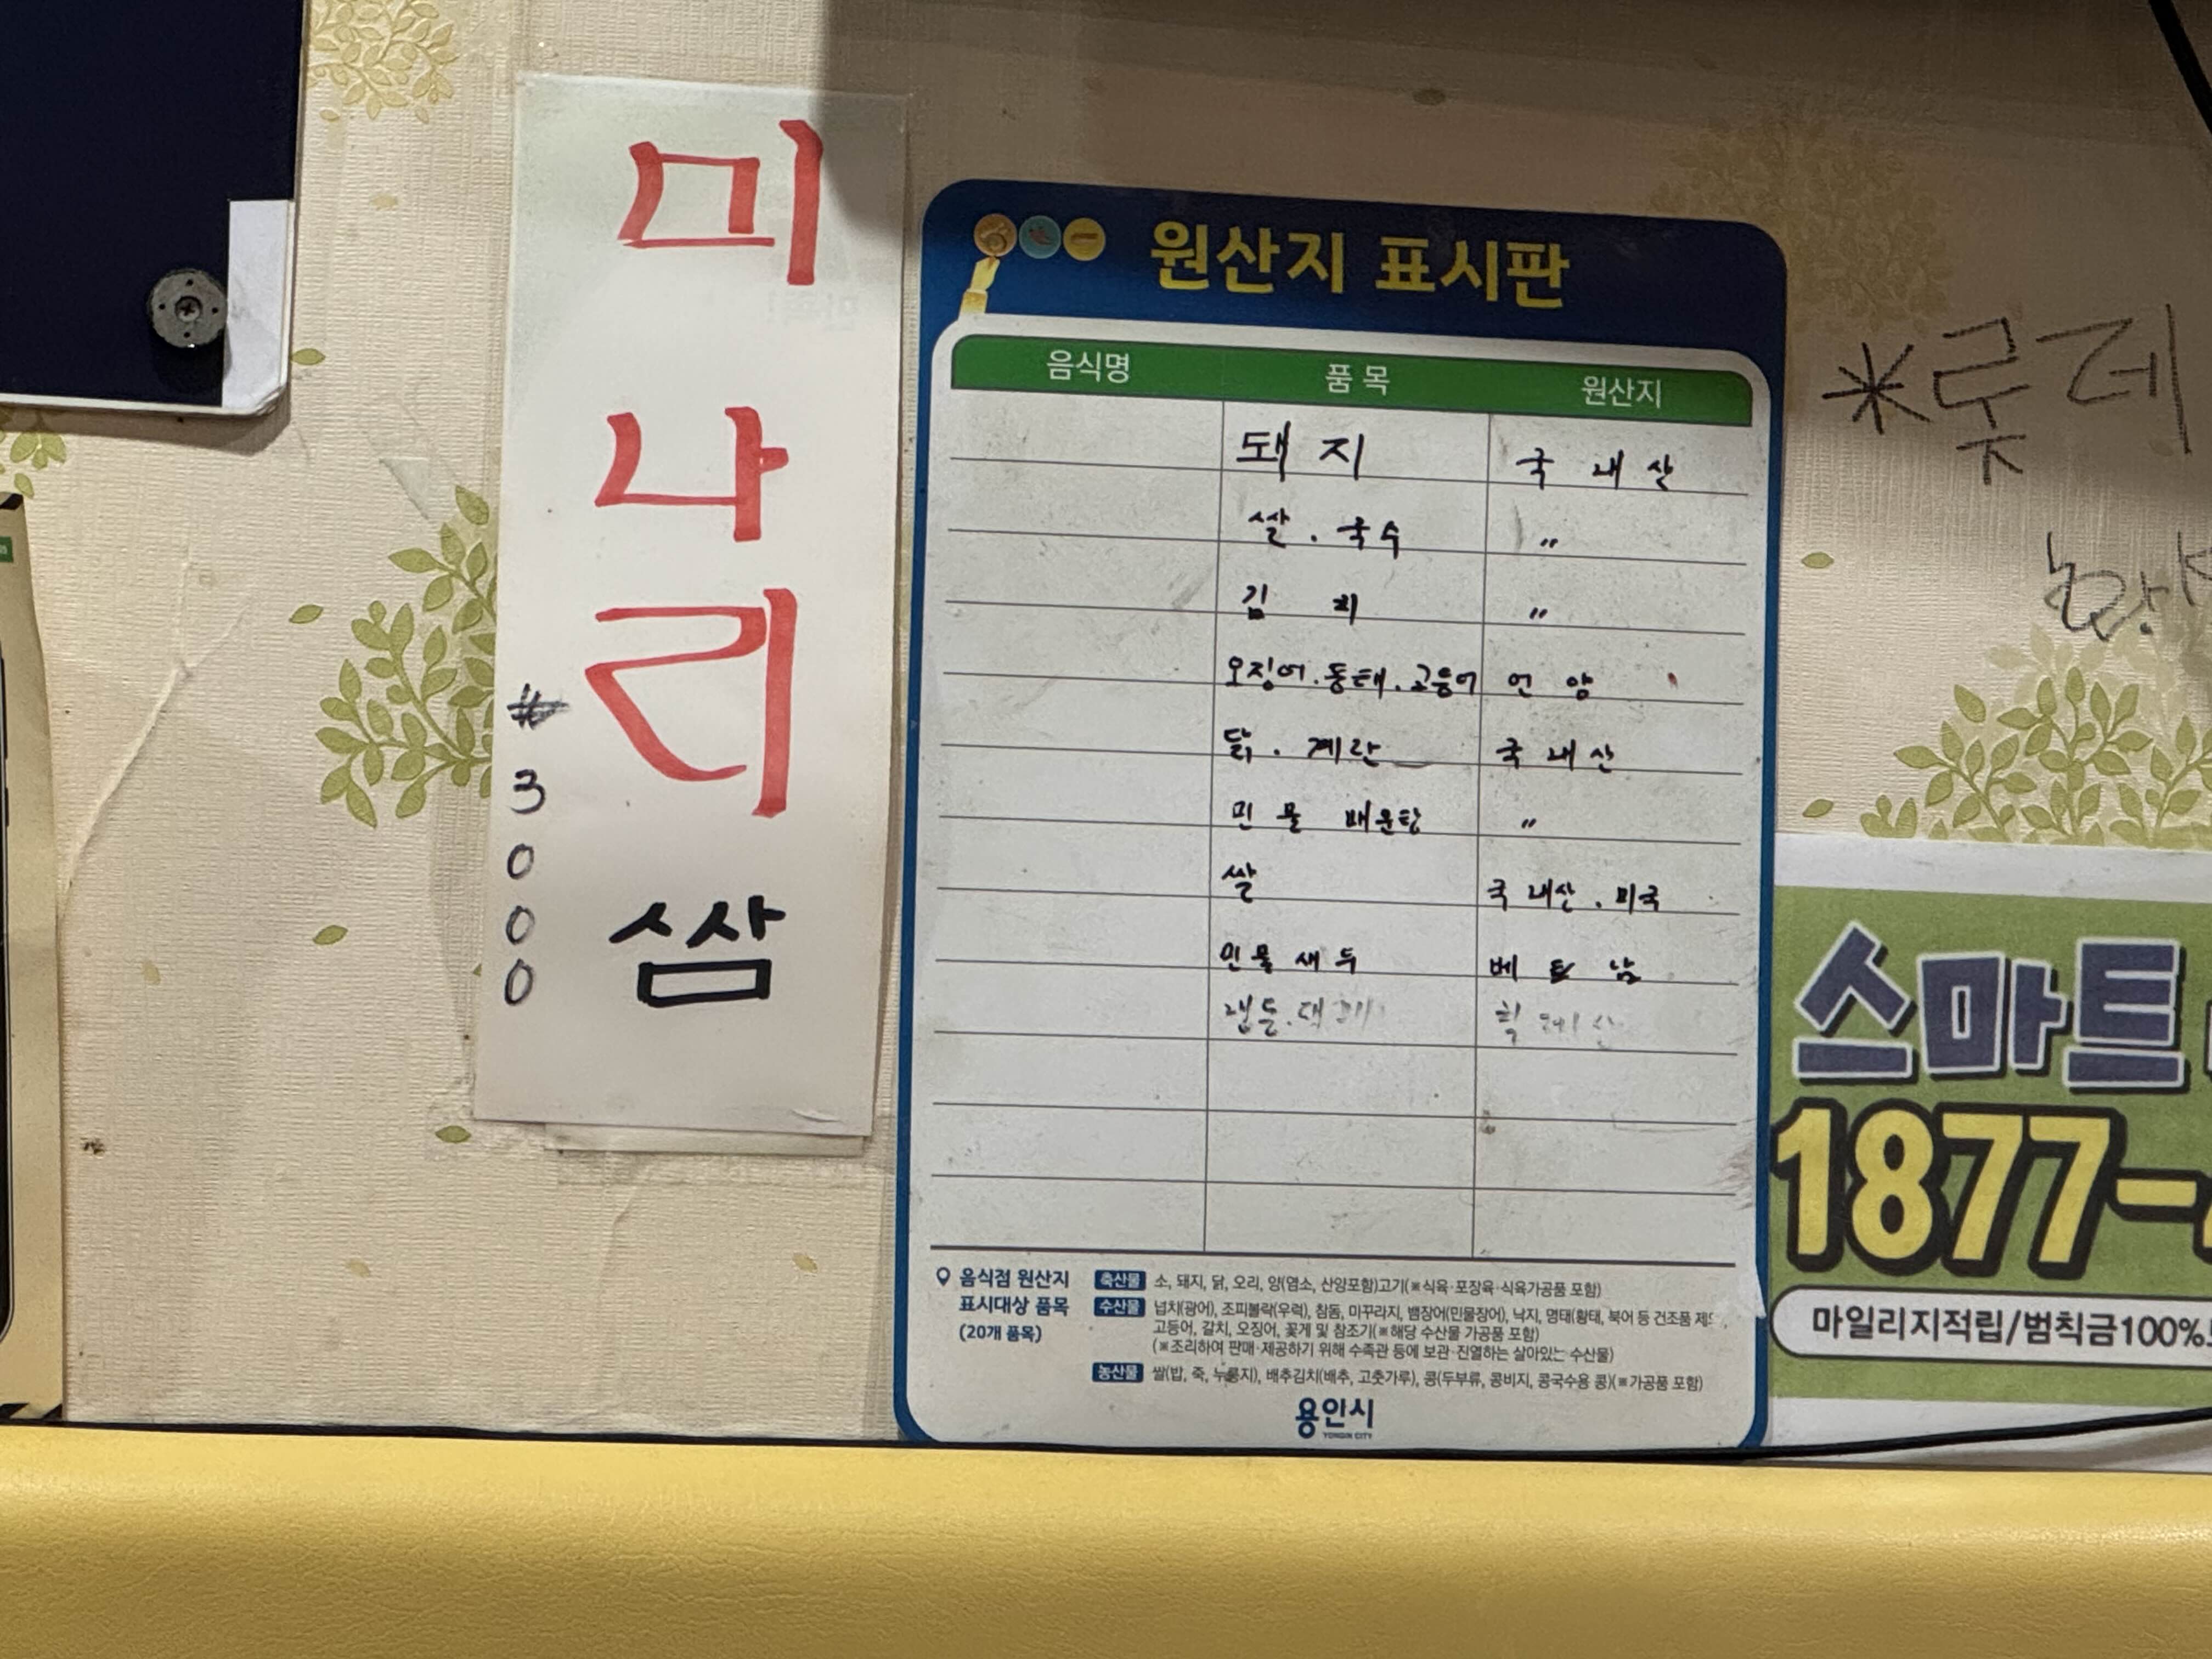 미
나
리
쌈
#
3
0
0
0
원산지 표시판
음식명 품목 원산지
돼지 국내산
쌀.국수 〃
김치 〃
오징어.동태.고등어
닭.계란 국내산
민물 매운탕 〃
쌀 국내산.미국
민물새우 베트남
음식점 원산지
표시대상 품목
(20개 품목)
축산물 소, 돼지, 닭, 오리, 양(염소, 산양포함)고기(※식육·포장육·식육가공품 포함)
수산물 넙치(광어), 조피볼락(우럭), 참돔, 미꾸라지, 뱀장어(민물장어), 낙지, 명태(황태, 북어 등 건조품 제외
고등어, 갈치, 오징어, 꽃게 및 참조기(※해당 수산물 가공품 포함)
(※조리하여 판매·제공하기 위해 수족관 등에 보관·진열하는 살아있는 수산물)
농산물 쌀(밥, 죽, 누룽지), 배추김치(배추, 고춧가루), 콩(두부류, 콩비지, 콩국수용 콩)(※가공품 포함)
용인시
YONGIN CITY
*롯데
스마트
1877-
마일리지적립/범칙금100%